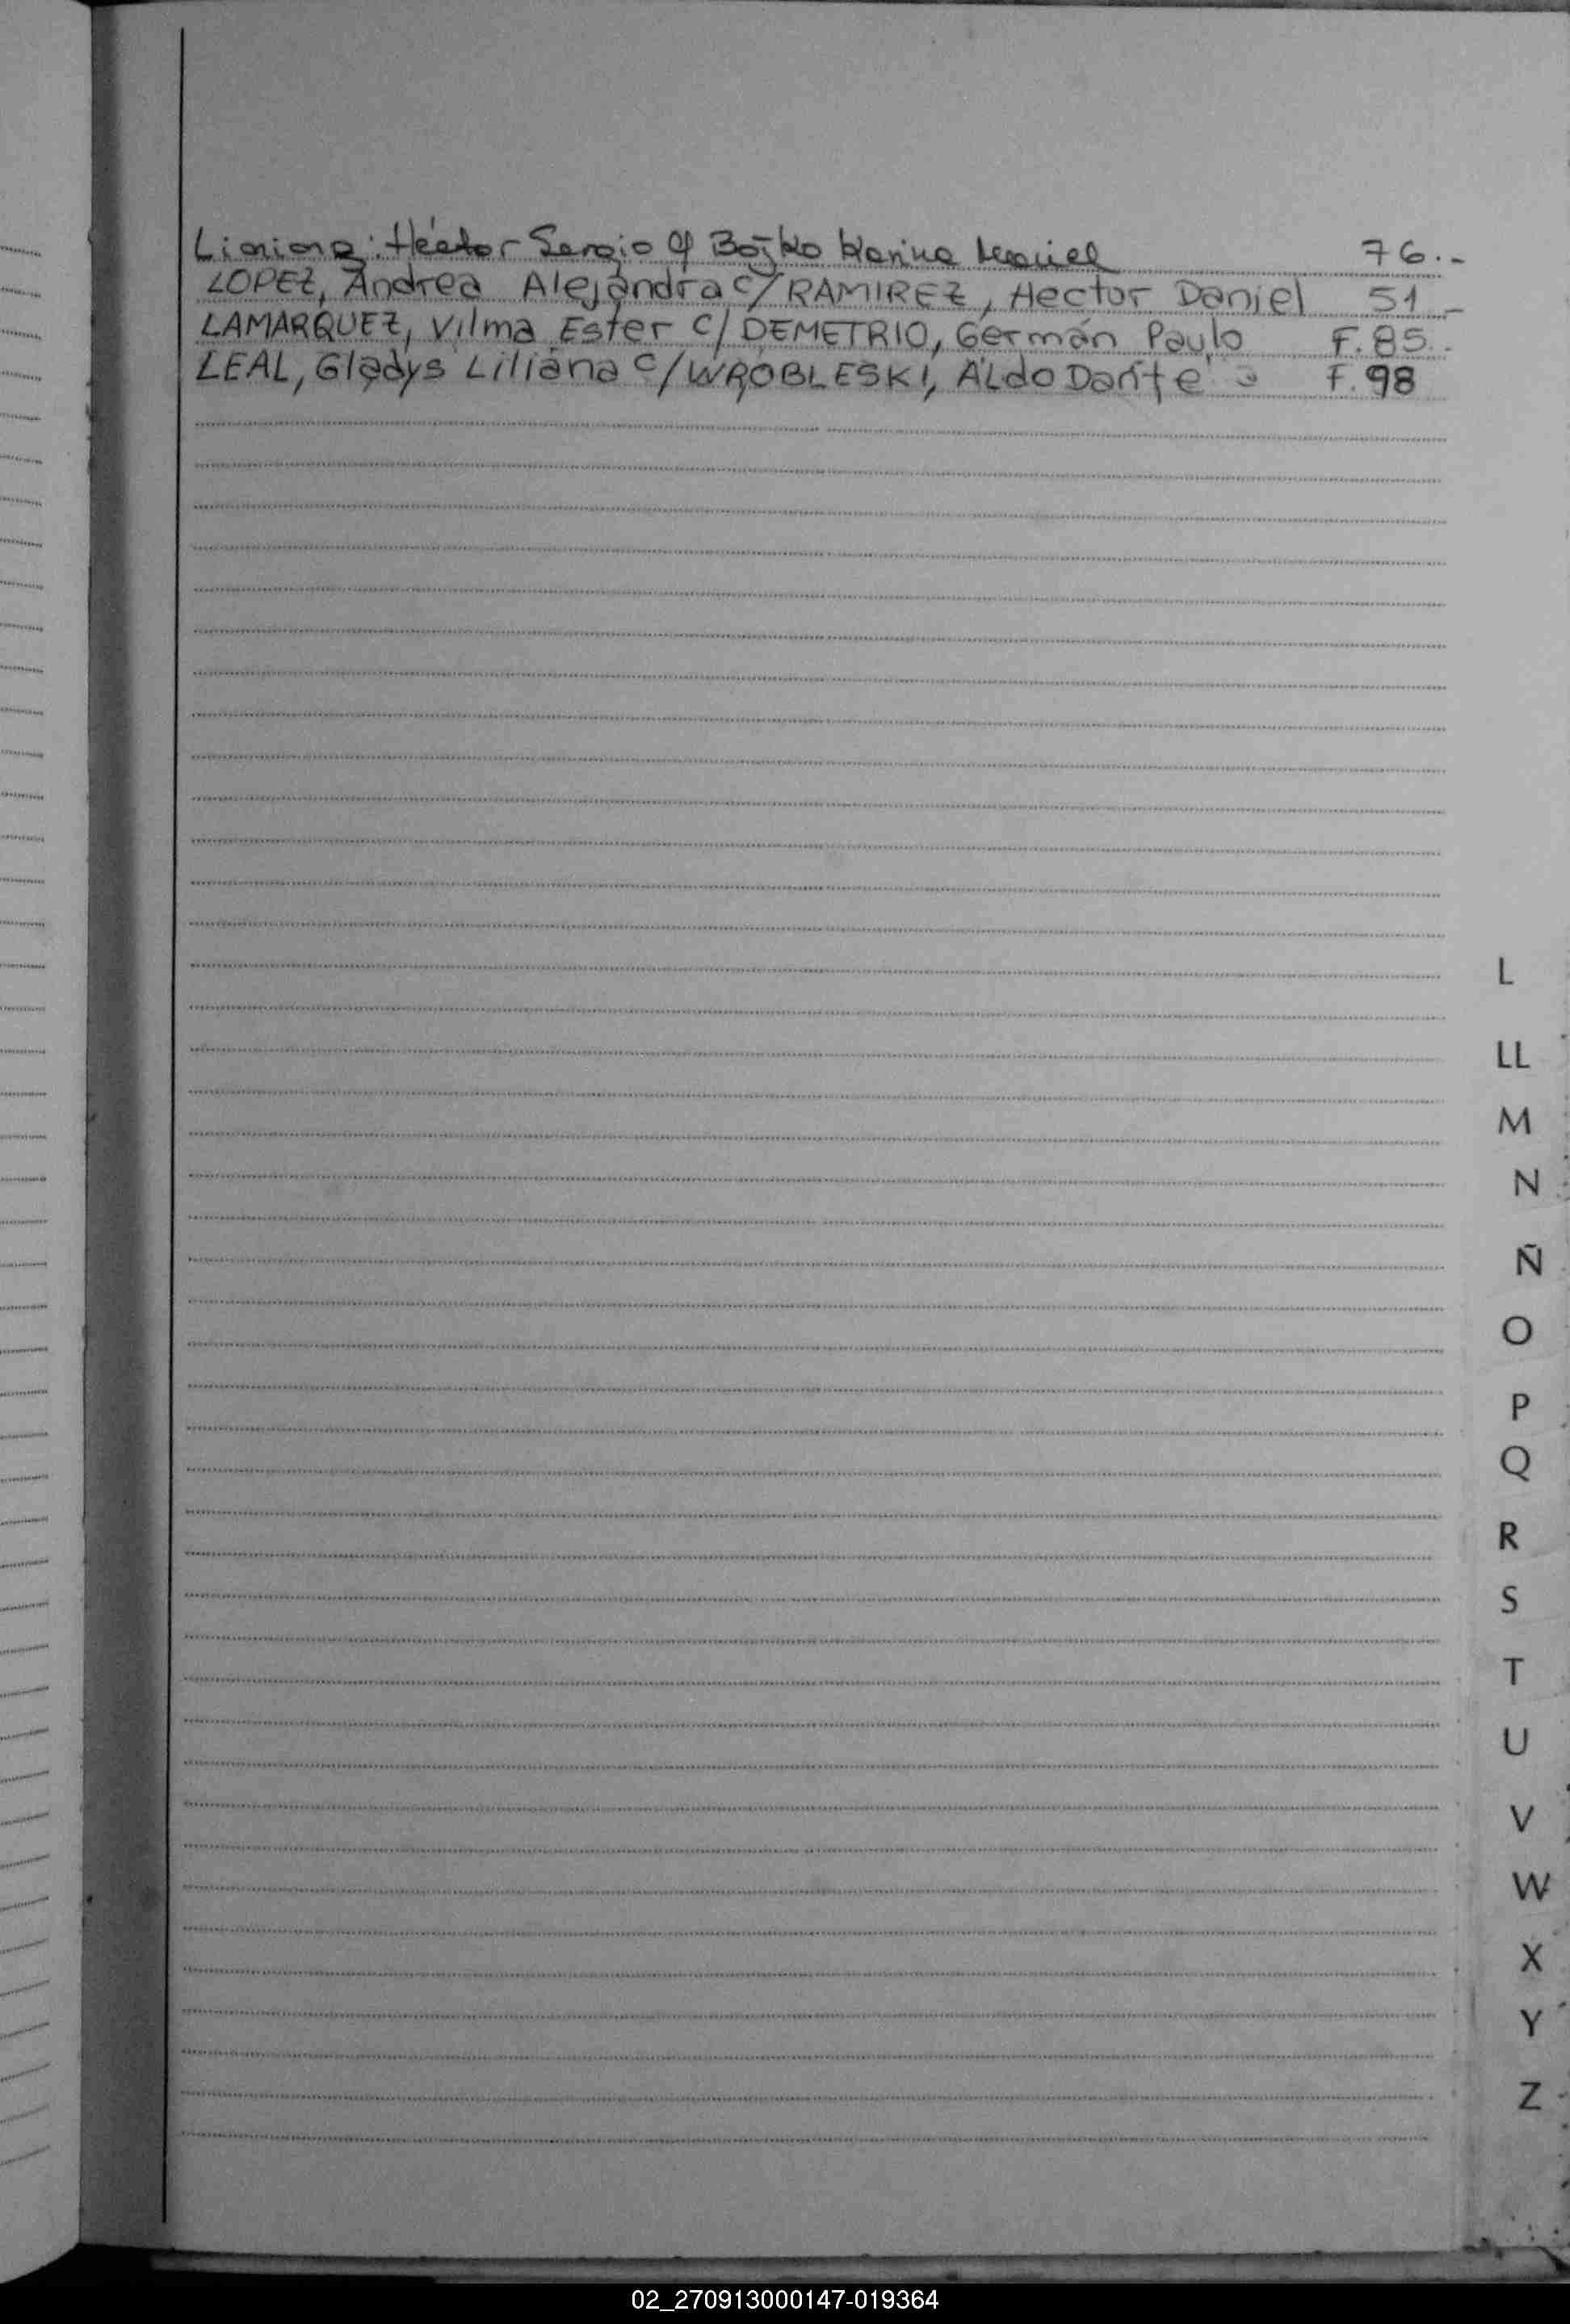 Héctor Sergio c/ Bojko Karina 76.-
LOPEZ, Andrea Alejandra c/ RAMIREZ, Hector Daniel 51 -
LAMARQUEZ, Vilma Ester c/ DEMETRIO, Germán Paulo F. 85.
LEAL, Gladys Liliana c/ WROBLESKI, Aldo Dante F. 98
L
LL
M
N
Ñ
O
P
Q
R
S
T
U
V
W
X
Y
Z
02_270913000147-019364